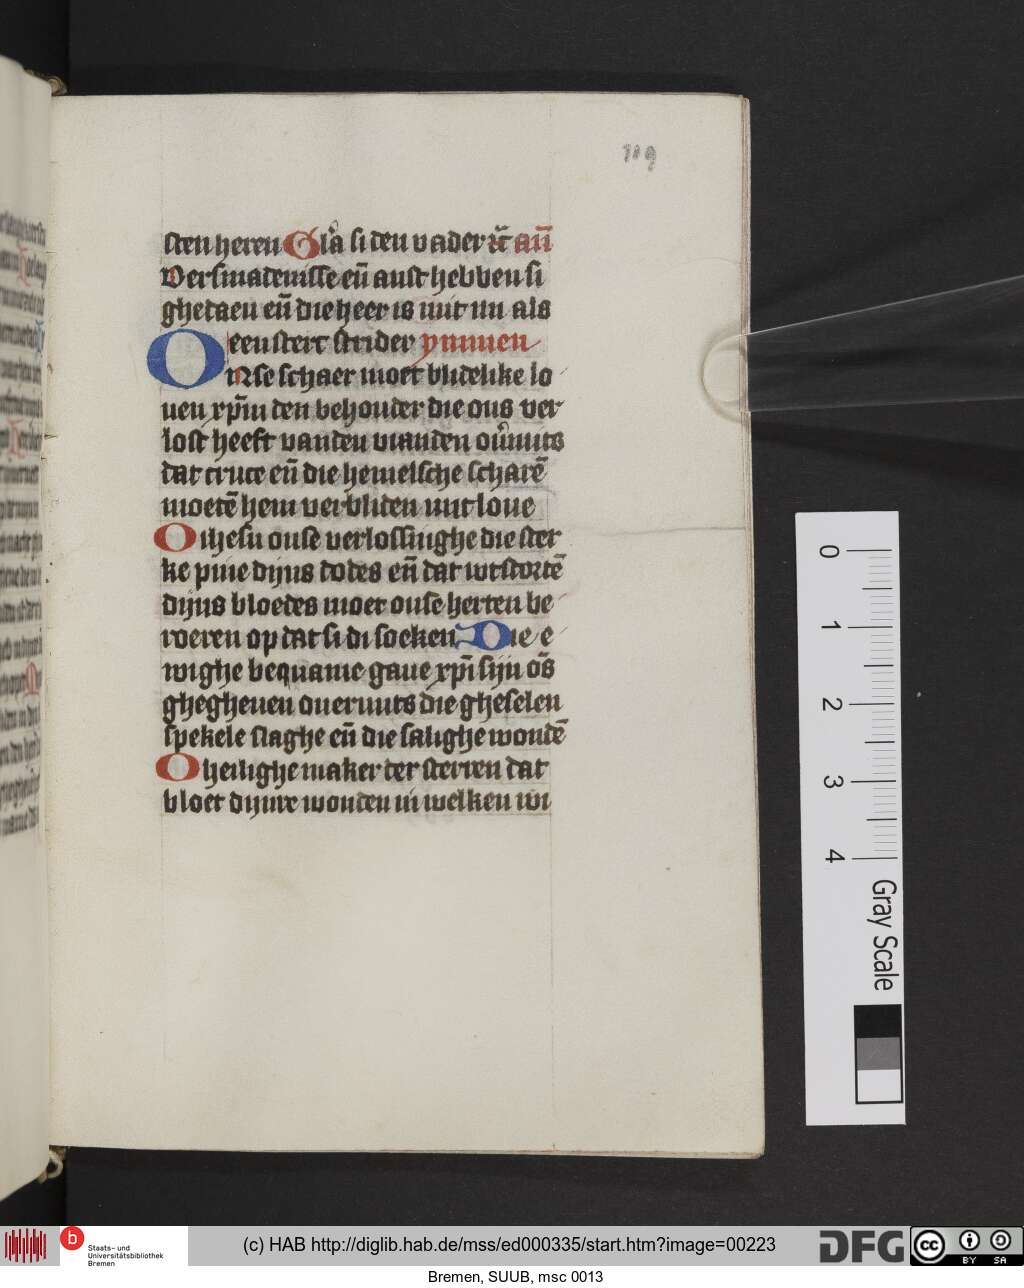 119
sten heren Gl͛a si den vader ꝛc̄ an̄
Versmadenisse en̄ anst hebben si
ghedaen en̄ die heer is mit mi als
een sterc strider ymnuen
Onse schaer moet blidelike lo
uen xp̄m den behouder die ons ver
lost heeft vanden vianden ou͛mits
dat cruce en̄ die hemelsche scharē
moetē hem verbliden mit loue
O ihesu onse verlossinghe die ster
ke pine dijns dodes en̄ dat wtstortē
dijns bloedes moet onse herten be
roeren op dat si di soeken Die e
wighe bequame gaue xp̄i sijn ōs
ghegheuen ouermits die gheselen
spekele slaghe en̄ die salighe wondē
O heilighe maker der sterren dat
bloet dijnre wonden in welken wi
0
1
2
3
4
Gray Scale
b
Staats- und
Universitätsbibliothek
Bremen
(c) HAB http://diglib.hab.de/mss/ed000335/start.htm?image=00223
DFG
cc
BY SA
Bremen, SUUB, msc 0013